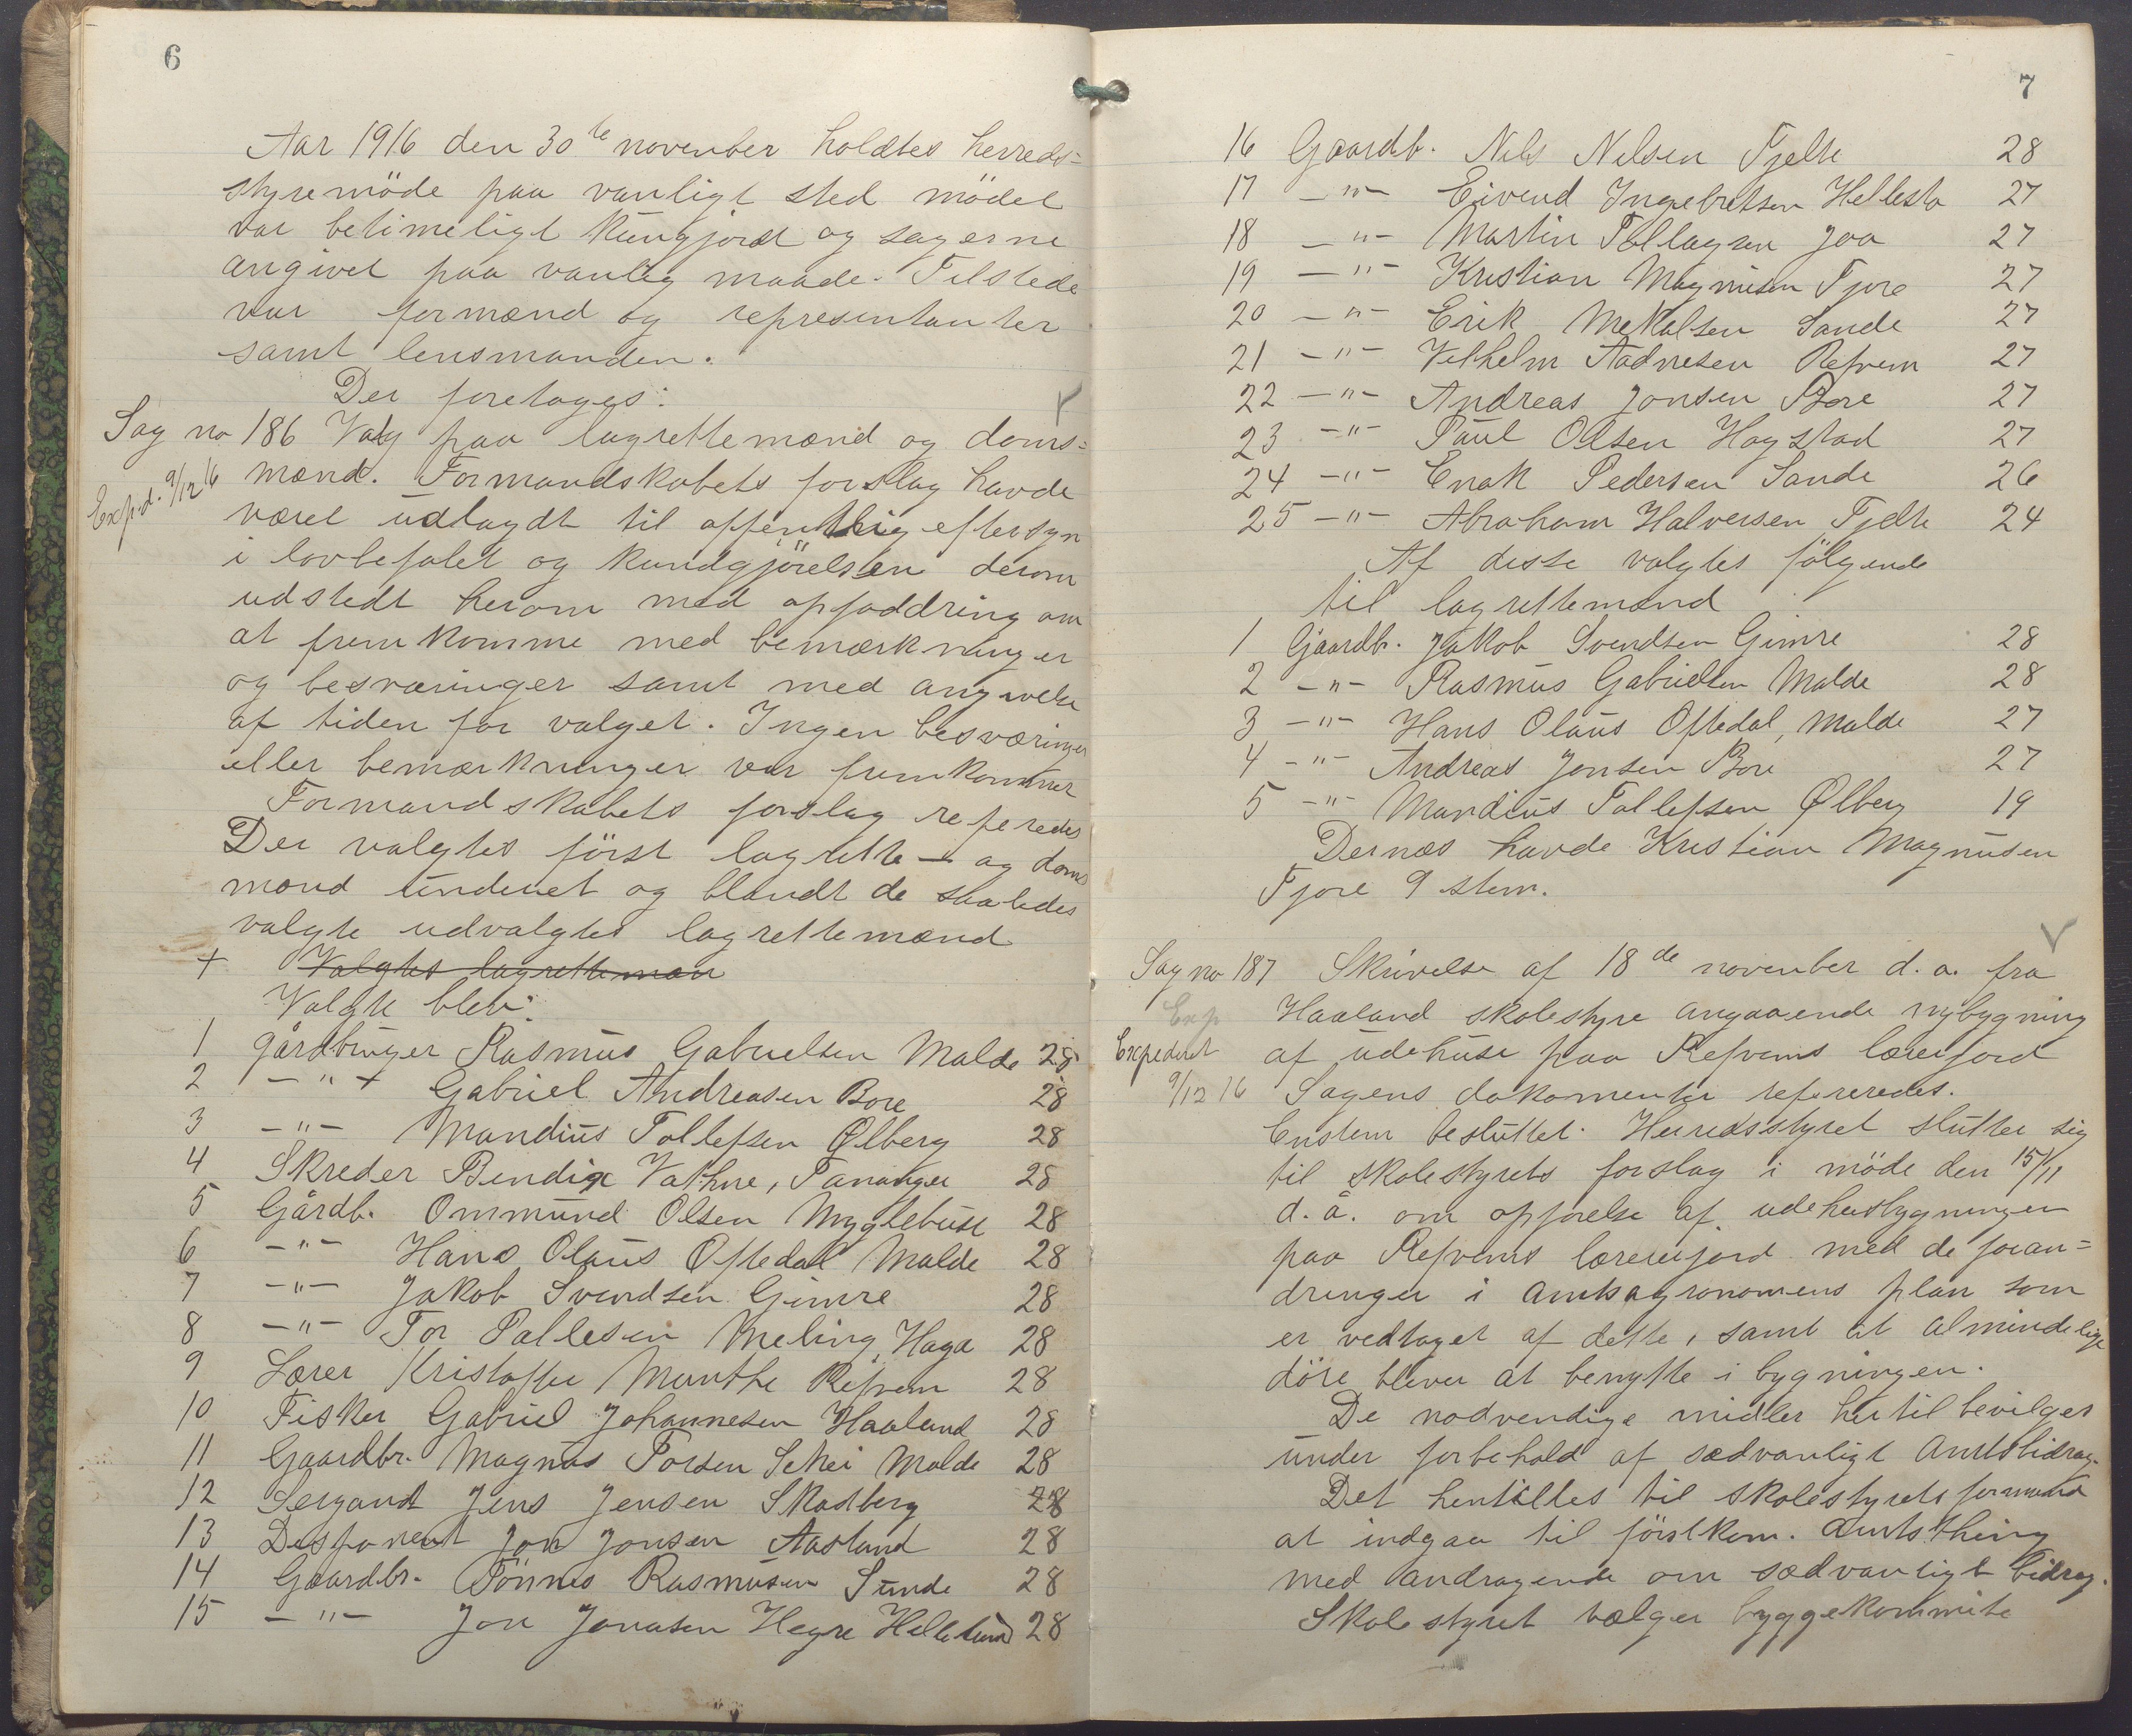 6
Aar 1916 den 30te november holdtes herreds=
styremöde paa vanligt sted mödet
var betimeligt kungjordt og sagerne
angivet paa vanlig maade. Tilstede
var formænd og representanter
samt lensmanden.
Der foretoges:
Sag no 186 Valg paa lagrettemænd og doms=
Exp.d. 9/12 16
mænd. Formandskabets forslag havde
været udlagdt til offentlig eftersyn
i lovbefalet og kundgjörelsen derom
udstedt herom med opfoddring om
at fremkomme med bemærkninger
og besværinger samt med angivelse
af tiden for valget. Ingen besværinger
eller bemærkninger var fremkommet
Formandskabets forslag referedes
Der valgtes först lagrette- og doms
mænd underet og blandt de saaledes
valgte udvalgtes lagrettemænd
+ Valgtes lagrettemæn
Valgte blev:
1 gårdbruger Rasmus Gabrielsen Malde 28
2 - " - Gabriel Andreasen Bore 28
3 - " - Mandius Tollefsen Ølberg 28
4 Skreder Bendix Vathne, Tananger 28
5 Gårdb. Ommund Olsen Myglebust 28
6 - " - Hans Olaus Oftedal Malde 28
7 - " - Jakob Svendsen Gimre 28
8 - " - Tor Pallesen Meling, Haga 28
9 Lærer Kristoffer Munthe Refvem 28
10 Fisker Gabriel Johannesen Haaland 28
11 Gaardbr. Magnus Torsen Skei Malde 28
12 Sergandt Jens Jensen Skadberg 28
13 Desponent Jon Jonsen Aasland 28
14 Gaardbr. Tönnes Rasmusen Sunde 28
15 - " - Jon Jonasen Hegre Hellestund 28
7
16 Gaardb. Nils Nelsen Tjelte 28
17 - " - Eivend Ingebretsen Hellesto 27
18 - " - Martin Tollagsen Joa 27
19 - " - Kristian Magnusen Tjore 27
20 - " - Erik Mekalsen Sande 27
21 - " - Velhelm Aadnesen Refvem 27
22 - " - Andreas Jonsen Bore 27
23 - " - Paul Olsen Hogstad 27
24 - " - Enok Pedersen Sande 26
25 - " - Abraham Halvorsen Tjelte 24
Af disse valgtes fölgende
til lagrettemænd
1 Gaardb. Jakob Svendsen Gimre 28
2 - " - Rasmus Gabrielsen Malde 28
3 - " - Hans Olaus Oftedal, Malde 27
4 - " - Andreas Jonsen Bore 27
5 - " - Mandius Tollefsen Ølberg 19
Dernæs havde Kristian Magnusen
Tjore 9 stem.
Sag no 187 Skrivelse af 18de november d.a. fra
Exp
Haaland skolestyre angaaende nybygning
Expederet
af udehuse paa Refvems lærerjord
9/12 16
Sagens dokomenter refereredes.
Enstem besluttet. Herredsstyret slutter sig
til skolestyrets forslag i möde den 15/11
d.å. om opförelse af udehusbygningen
paa Refvems lærererjord med de foran=
dringer i Amtsagronomens plan som
er vedtaget af dette, samt at almindelige
döre bliver at benytte i bygningen.
De nodvendige midler hertil bevilges
under forbehold af sædvanligt Amtsbidrag.
Det henstilles til skolestyrets formand
at indgaa til förstkom. amtsthing
med andragende om sædvanligt bidrag.
Skolestyret vælger byggekommite